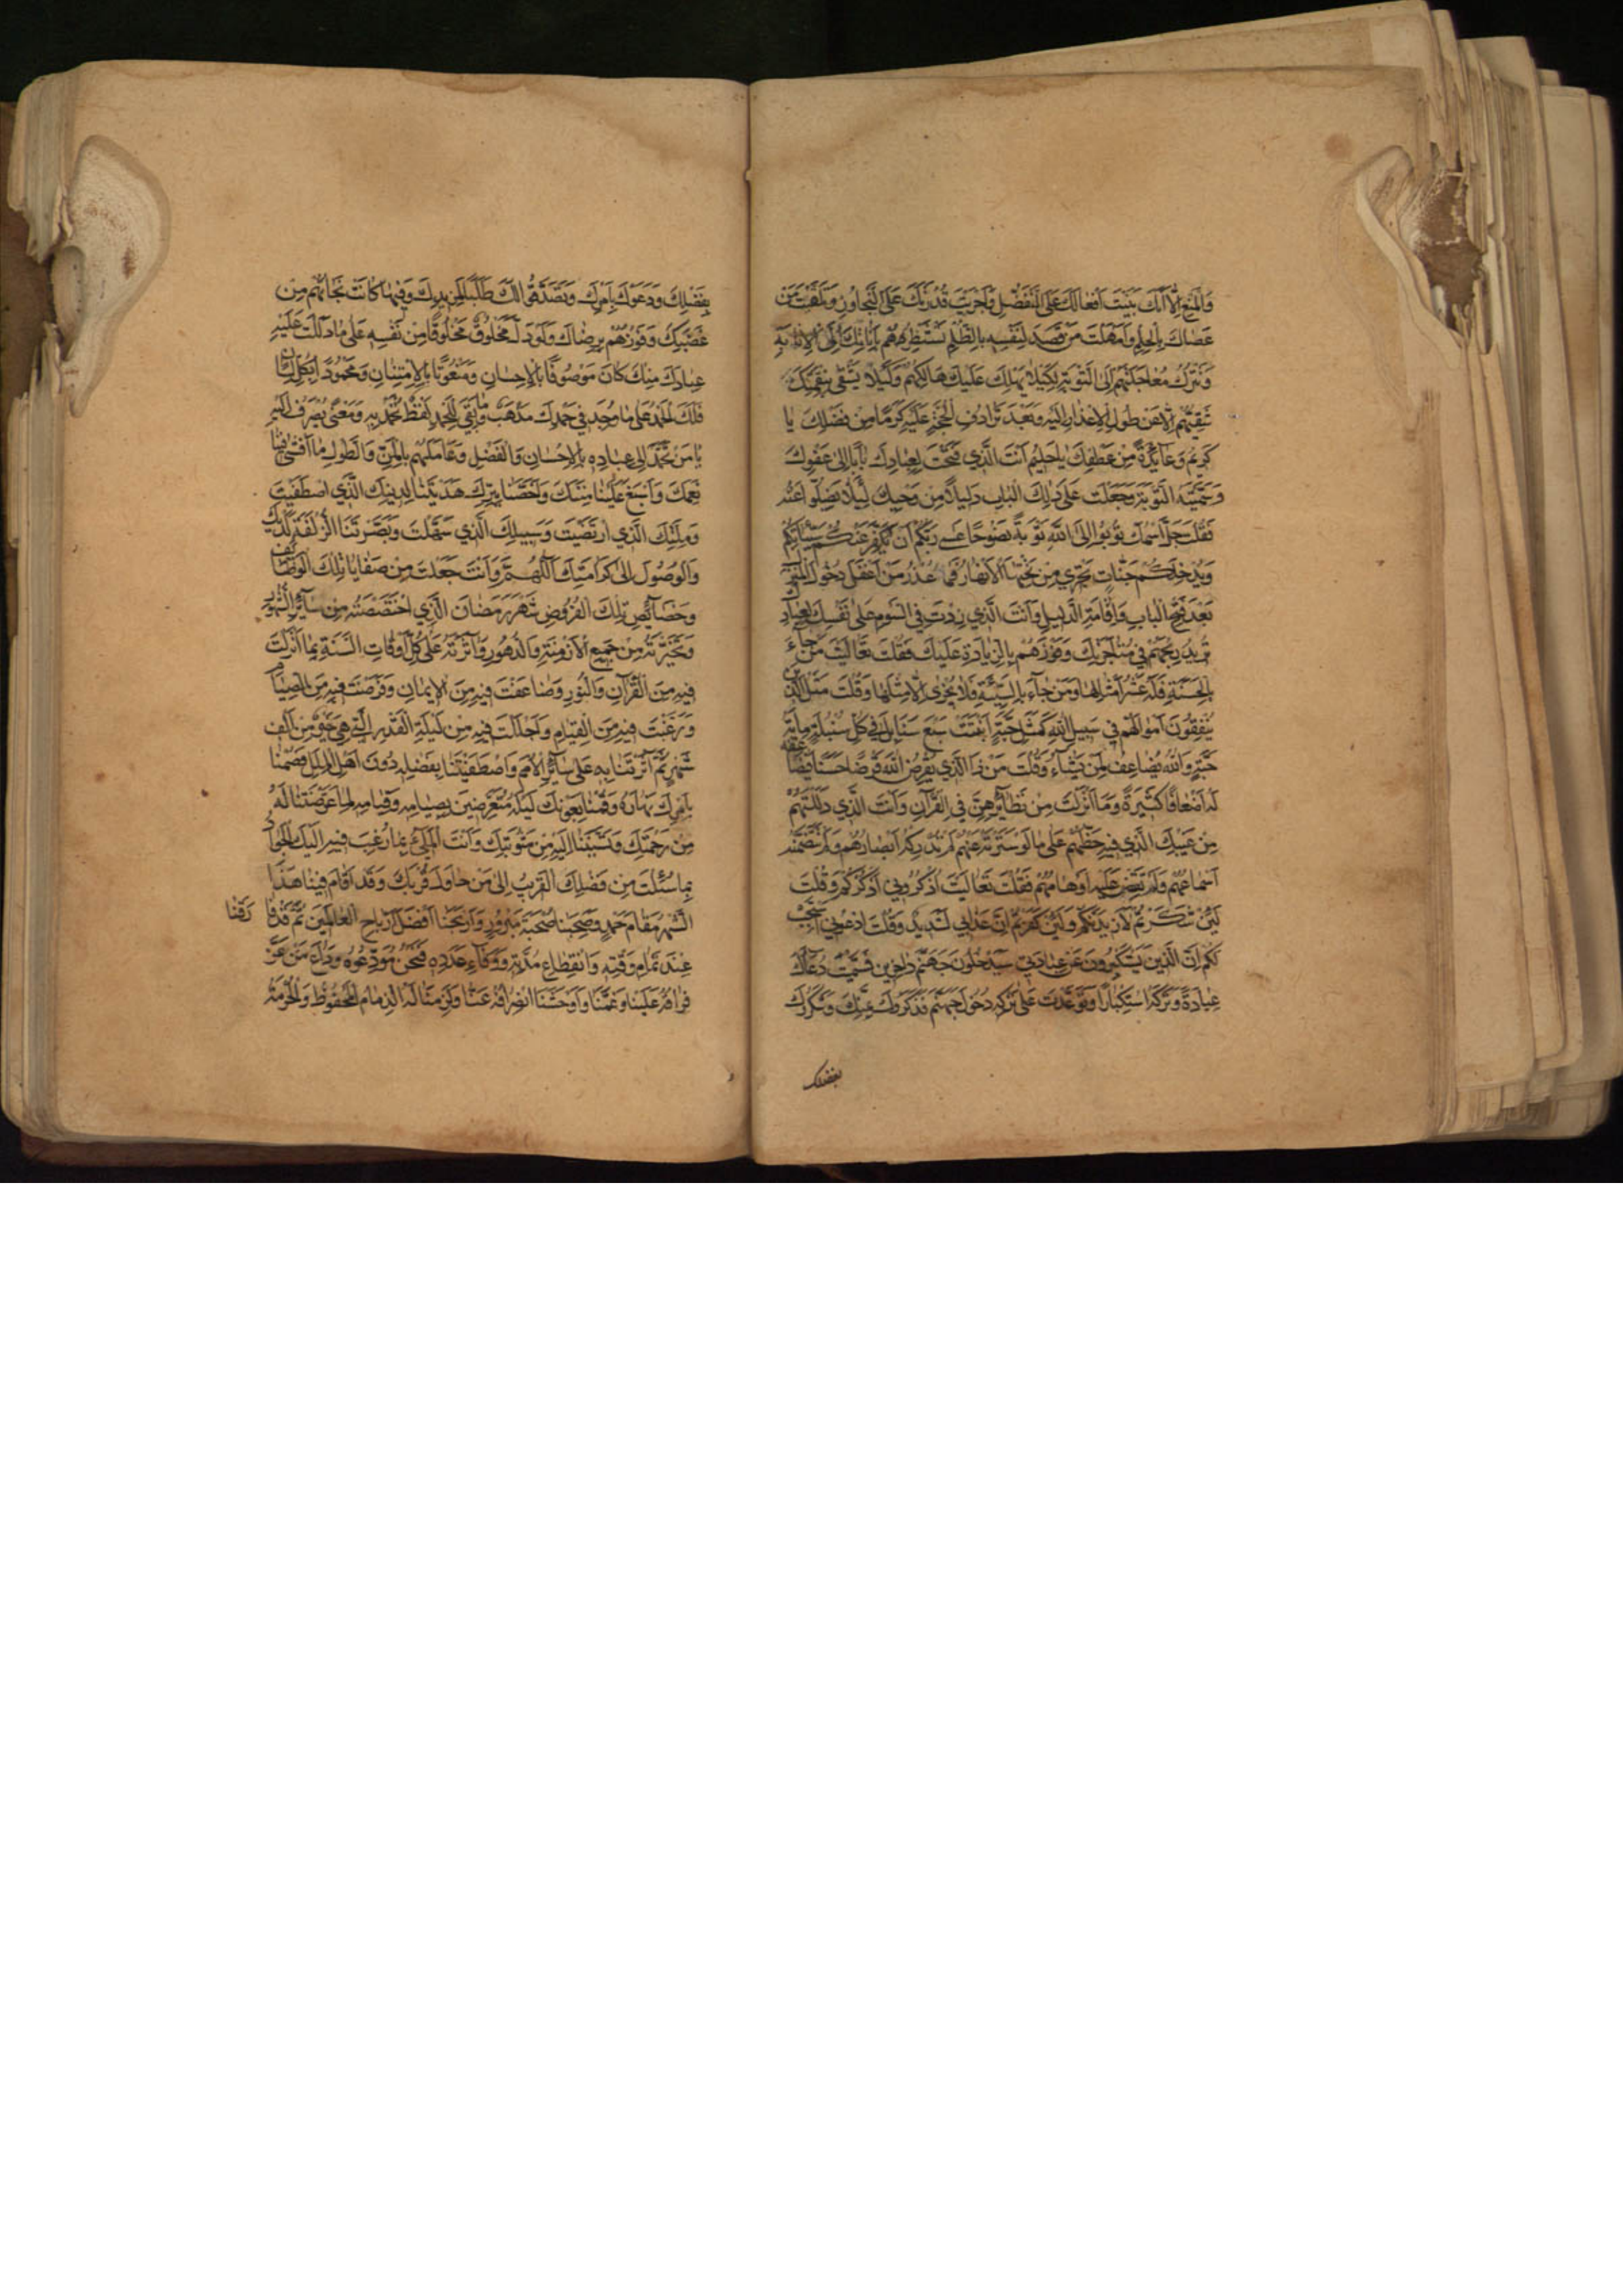 وَالْمَنْعِ اِلَّا اَنَّكَ بَنَيْتَ اَفْعَالَكَ عَلَى التَّفَضُّلِ وَاَجْرَيْتَ قُدْرَتَكَ عَلَى التَّجَاوُزِ وَتَلَقَّيْتَ مَنْ
عَصَاكَ بِالْحِلْمِ وَاَمْهَلْتَ مَنْ قَصَدَ لِنَفْسِهِ بِالظُّلْمِ تَسْتَنْظِرُهُمْ بِاَنَاتِكَ اِلَى الْاِنَابَةِ
وَتَتْرُكُ مُعَاجَلَتَهُمْ اِلَى التَّوْبَةِ لِكَيْلَا يَهْلِكَ عَلَيْكَ هَالِكُهُمْ وَلِكَيْلَا يَشْقٰى بِنِقْمَتِكَ
شَقِيُّهُمْ اِلَّا عَنْ طُولِ الْاِعْذَارِ اِلَيْهِ وَبَعْدَ تَرَادُفِ الْحُجَّةِ عَلَيْهِ كَرَمًا مِنْ فَضْلِكَ يَا
كَرِيمُ وَعَائِدَةً مِنْ عَطْفِكَ يَا حَلِيمُ اَنْتَ الَّذِي فَتَحْتَ لِعِبَادِكَ بَابًا اِلٰى عَفْوِكَ
وَسَمَّيْتَهُ التَّوْبَةَ وَجَعَلْتَ عَلٰى ذٰلِكَ الْبَابِ دَلِيلًا مِنْ وَحْيِكَ لِئَلَّا يَضِلُّوا عَنْهُ
فَقُلْتَ جَلَّ اسْمُكَ تُوبُوا اِلَى اللّٰهِ تَوْبَةً نَصُوحًا عَسٰى رَبُّكُمْ اَنْ يُكَفِّرَ عَنْكُمْ سَيِّئَاتِكُمْ
وَيُدْخِلَكُمْ جَنَّاتٍ تَجْرِي مِنْ تَحْتِهَا الْاَنْهَارُ فَمَا عُذْرُ مَنْ اَغْفَلَ دُخُولَ الْمَنْزِلِ
بَعْدَ فَتْحِ الْبَابِ وَاِقَامَةِ الدَّلِيلِ وَاَنْتَ الَّذِي زِدْتَ فِي السَّوْمِ عَلٰى نَفْسِكَ لِعِبَادِكَ
تُرِيدُ رِبْحَهُمْ فِي مُتَاجَرَتِكَ وَفَوْزَهُمْ بِالزِّيَادَةِ عَلَيْكَ فَقُلْتَ تَعَالَيْتَ مَنْ جَاءَ
بِالْحَسَنَةِ فَلَهُ عَشْرُ اَمْثَالِهَا وَمَنْ جَاءَ بِالسَّيِّئَةِ فَلَا يُجْزٰى اِلَّا مِثْلَهَا وَقُلْتَ مَثَلُ الَّذِينَ
يُنْفِقُونَ اَمْوَالَهُمْ فِي سَبِيلِ اللّٰهِ كَمَثَلِ حَبَّةٍ اَنْبَتَتْ سَبْعَ سَنَابِلَ فِي كُلِّ سُنْبُلَةٍ مِائَةُ
حَبَّةٍ وَاللّٰهُ يُضَاعِفُ لِمَنْ يَشَاءُ وَقُلْتَ مَنْ ذَا الَّذِي يُقْرِضُ اللّٰهَ قَرْضًا حَسَنًا فَيُضَاعِفَهُ
لَهُ اَضْعَافًا كَثِيرَةً وَمَا اَنْزَلْتَ مِنْ نَظَائِرِهِنَّ فِي الْقُرْآنِ وَاَنْتَ الَّذِي دَلَلْتَهُمْ
مِنْ غَيْبِكَ الَّذِي فِيهِ حَظُّهُمْ عَلٰى مَا لَوْ سَتَرْتَهُ عَنْهُمْ لَمْ تُدْرِكْهُ اَبْصَارُهُمْ وَلَمْ
اَسْمَاعُهُمْ وَلَمْ عَلَيْهِ اَوْهَامُهُمْ فَقُلْتَ تَعَالَيْتَ اذْكُرُونِي اَذْكُرْكُمْ وَقُلْتَ
لَئِنْ شَكَرْتُمْ لَاَزِيدَنَّكُمْ وَلَئِنْ كَفَرْتُمْ اِنَّ عَذَابِي لَشَدِيدٌ وَقُلْتَ ادْعُونِي اَسْتَجِبْ
لَكُمْ اِنَّ الَّذِينَ يَسْتَكْبِرُونَ عَنْ عِبَادَتِي سَيَدْخُلُونَ جَهَنَّمَ دَاخِرِينَ فَسَمَّيْتَ دُعَاءَكَ
عِبَادَةً وَتَرْكَهُ اسْتِكْبَارًا وَتَوَعَّدْتَ عَلٰى تَرْكِهِ دُخُولَ جَهَنَّمَ فَذَكَرُوكَ بِمَنِّكَ وَشَكَرُوكَ
بفضلك
بِفَضْلِكَ وَدَعَوْكَ بِاَمْرِكَ وَتَصَدَّقُوا لَكَ طَلَبًا لِمَزِيدِكَ وَفِيهَا كَانَتْ نَجَاتُهُمْ مِنْ
غَضَبِكَ وَفَوْزُهُمْ بِرِضَاكَ وَلَوْ دَلَّ مَخْلُوقٌ مَخْلُوقًا مِنْ نَفْسِهِ عَلٰى مَا دَلَلْتَ عَلَيْهِ
عِبَادَكَ مِنْكَ كَانَ مَوْصُوفًا بِالْاِحْسَانِ وَمَنْعُوتًا بِالْاِمْتِنَانِ وَمَحْمُودًا بِكُلِّ لِسَانٍ
فَلَكَ الْحَمْدُ عَلٰى مَا وُجِدَ فِي حَمْدِكَ مَذْهَبٌ وَمَا بَقِيَ لِلْحَمْدِ لَفْظٌ تُحْمَدُ بِهِ وَمَعْنًى يُصْرَفُ اِلَيْهِ
يَا مَنْ تَحَمَّدَ اِلٰى عِبَادِهِ بِالْاِحْسَانِ وَالْفَضْلِ وَعَامَلَهُمْ بِالْمَنِّ وَالطَّوْلِ مَا اَفْشٰى فِينَا
نِعْمَتَكَ وَاَسْبَغَ عَلَيْنَا مِنَّتَكَ وَاَخَصَّنَا بِبِرِّكَ هَدَيْتَنَا لِدِينِكَ الَّذِي اصْطَفَيْتَ
وَمِلَّتِكَ الَّذِي ارْتَضَيْتَ وَسَبِيلِكَ الَّذِي سَهَّلْتَ وَبَصَّرْتَنَا الزُّلْفَةَ لَدَيْكَ
وَالْوُصُولَ اِلٰى كَرَامَتِكَ اَللّٰهُمَّ وَاَنْتَ جَعَلْتَ مِنْ صَفَايَا تِلْكَ الْوَظَائِفِ
وَخَصَائِصِ تِلْكَ الْفُرُوضِ شَهْرَ رَمَضَانَ الَّذِي اخْتَصَصْتَهُ مِنْ سَائِرِ الشُّهُورِ
وَتَخَيَّرْتَهُ مِنْ جَمِيعِ الْاَزْمِنَةِ وَالدُّهُورِ وَآثَرْتَهُ عَلٰى كُلِّ اَوْقَاتِ السَّنَةِ بِمَا اَنْزَلْتَ
فِيهِ مِنَ الْقُرْآنِ وَالنُّورِ وَضَاعَفْتَ فِيهِ مِنَ الْاِيمَانِ وَفَرَضْتَ فِيهِ مِنَ الصِّيَامِ
وَرَغَّبْتَ فِيهِ مِنَ الْقِيَامِ وَاَجْلَلْتَ فِيهِ مِنْ لَيْلَةِ الْقَدْرِ الَّتِي هِيَ خَيْرٌ مِنْ اَلْفِ
شَهْرٍ ثُمَّ آثَرْتَنَا بِهِ عَلٰى سَائِرِ الْاُمَمِ وَاصْطَفَيْتَنَا بِفَضْلِهِ دُونَ اَهْلِ الْمِلَلِ فَصُمْنَا
بِاَمْرِكَ نَهَارَهُ وَقُمْنَا بِعَوْنِكَ لَيْلَهُ مُتَعَرِّضِينَ بِصِيَامِهِ وَقِيَامِهِ لِمَا عَرَّضْتَنَا لَهُ
مِنْ رَحْمَتِكَ وَتَسَبَّبْنَا اِلَيْهِ مِنْ مَثُوبَتِكَ وَاَنْتَ الْمَلِيءُ بِمَا رُغِبَ فِيهِ اِلَيْكَ الْجَوَادُ
بِمَا سُئِلْتَ مِنْ فَضْلِكَ الْقَرِيبُ اِلٰى مَنْ حَاوَلَ قُرْبَكَ وَقَدْ اَقَامَ فِينَا هٰذَا
الشَّهْرُ مَقَامَ حَمْدٍ وَصَحِبَنَا صُحْبَةَ مَبْرُورٍ وَاَرْبَحَنَا اَفْضَلَ اَرْبَاحِ الْعَالَمِينَ ثُمَّ قَدْ فَا رَقَنَا
عِنْدَ تَمَامِ وَقْتِهِ وَانْقِطَاعِ مُدَّتِهِ وَوَفَاءِ عَدَدِهِ فَنَحْنُ مُوَدِّعُوهُ وِدَاعَ مَنْ عَزَّ
فِرَاقُهُ عَلَيْنَا وَغَمَّنَا وَاَوْحَشَنَا انْصِرَافُهُ عَنَّا وَلَزِمَنَا لَهُ الذِّمَامُ الْمَحْفُوظُ وَالْحُرْمَةُ